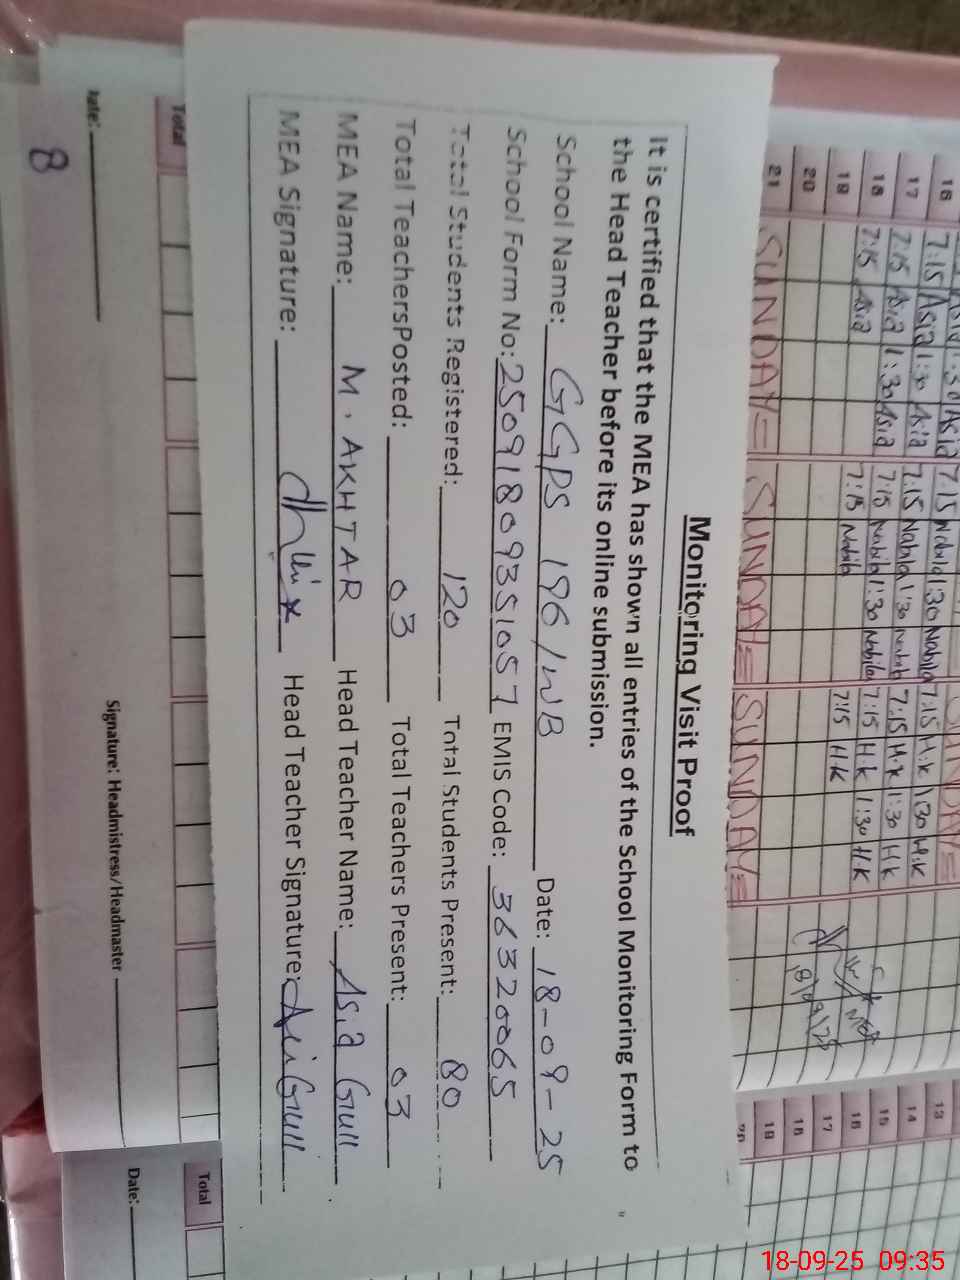 Monitoring Visit Proof
It is certified that the MEA has shown all entries of the School Monitoring Form to
the Head Teacher before its online submission.
School Name: GGPS 196/WB Date: 18-09-25
School Form No: 25091809351057 EMIS Code: 36320065
Total Students Registered: 120 Total Students Present: 80
Total TeachersPosted: 03 Total Teachers Present: 03
MEA Name: M. AKHTAR Head Teacher Name: Asia Gull
MEA Signature: Head Teacher Signature:
16 7:15 Asia 1:30 Asia 7:15 Nabila 1:30 Nabila 7:15 H.K 1:30 H.K
17 7:15 Asia 1:30 Asia 7:15 Nabila 1:30 Nabila 7:15 H.K 1:30 H.K
18 7:15 Asia 7:15 Nabila 7:15 H.K
19
20
21 SUNDAY= SUNDAY= SUNDAY=
13
14
15
16
17
18
19
20
Total
Total
Signature: Headmistress/Headmaster
Date:
8
18-09-25 09:35